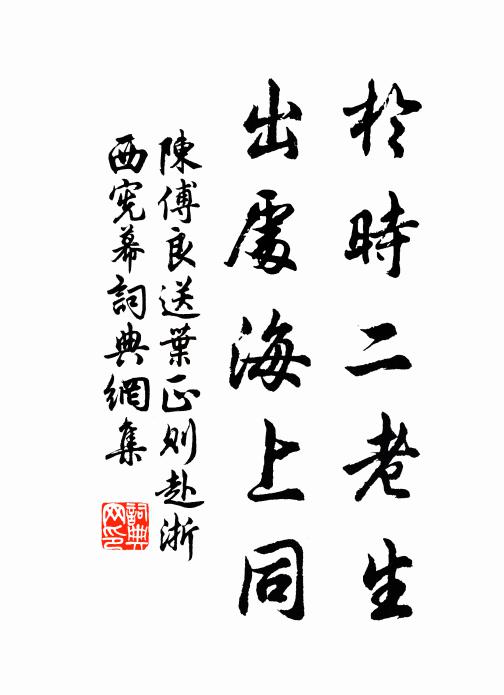 於時二老生
出處海上同
陳傅良送葉正則赴浙
西憲幕詞典網集
詞典
网印